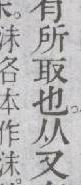 有所取也从又
沬各本作沫